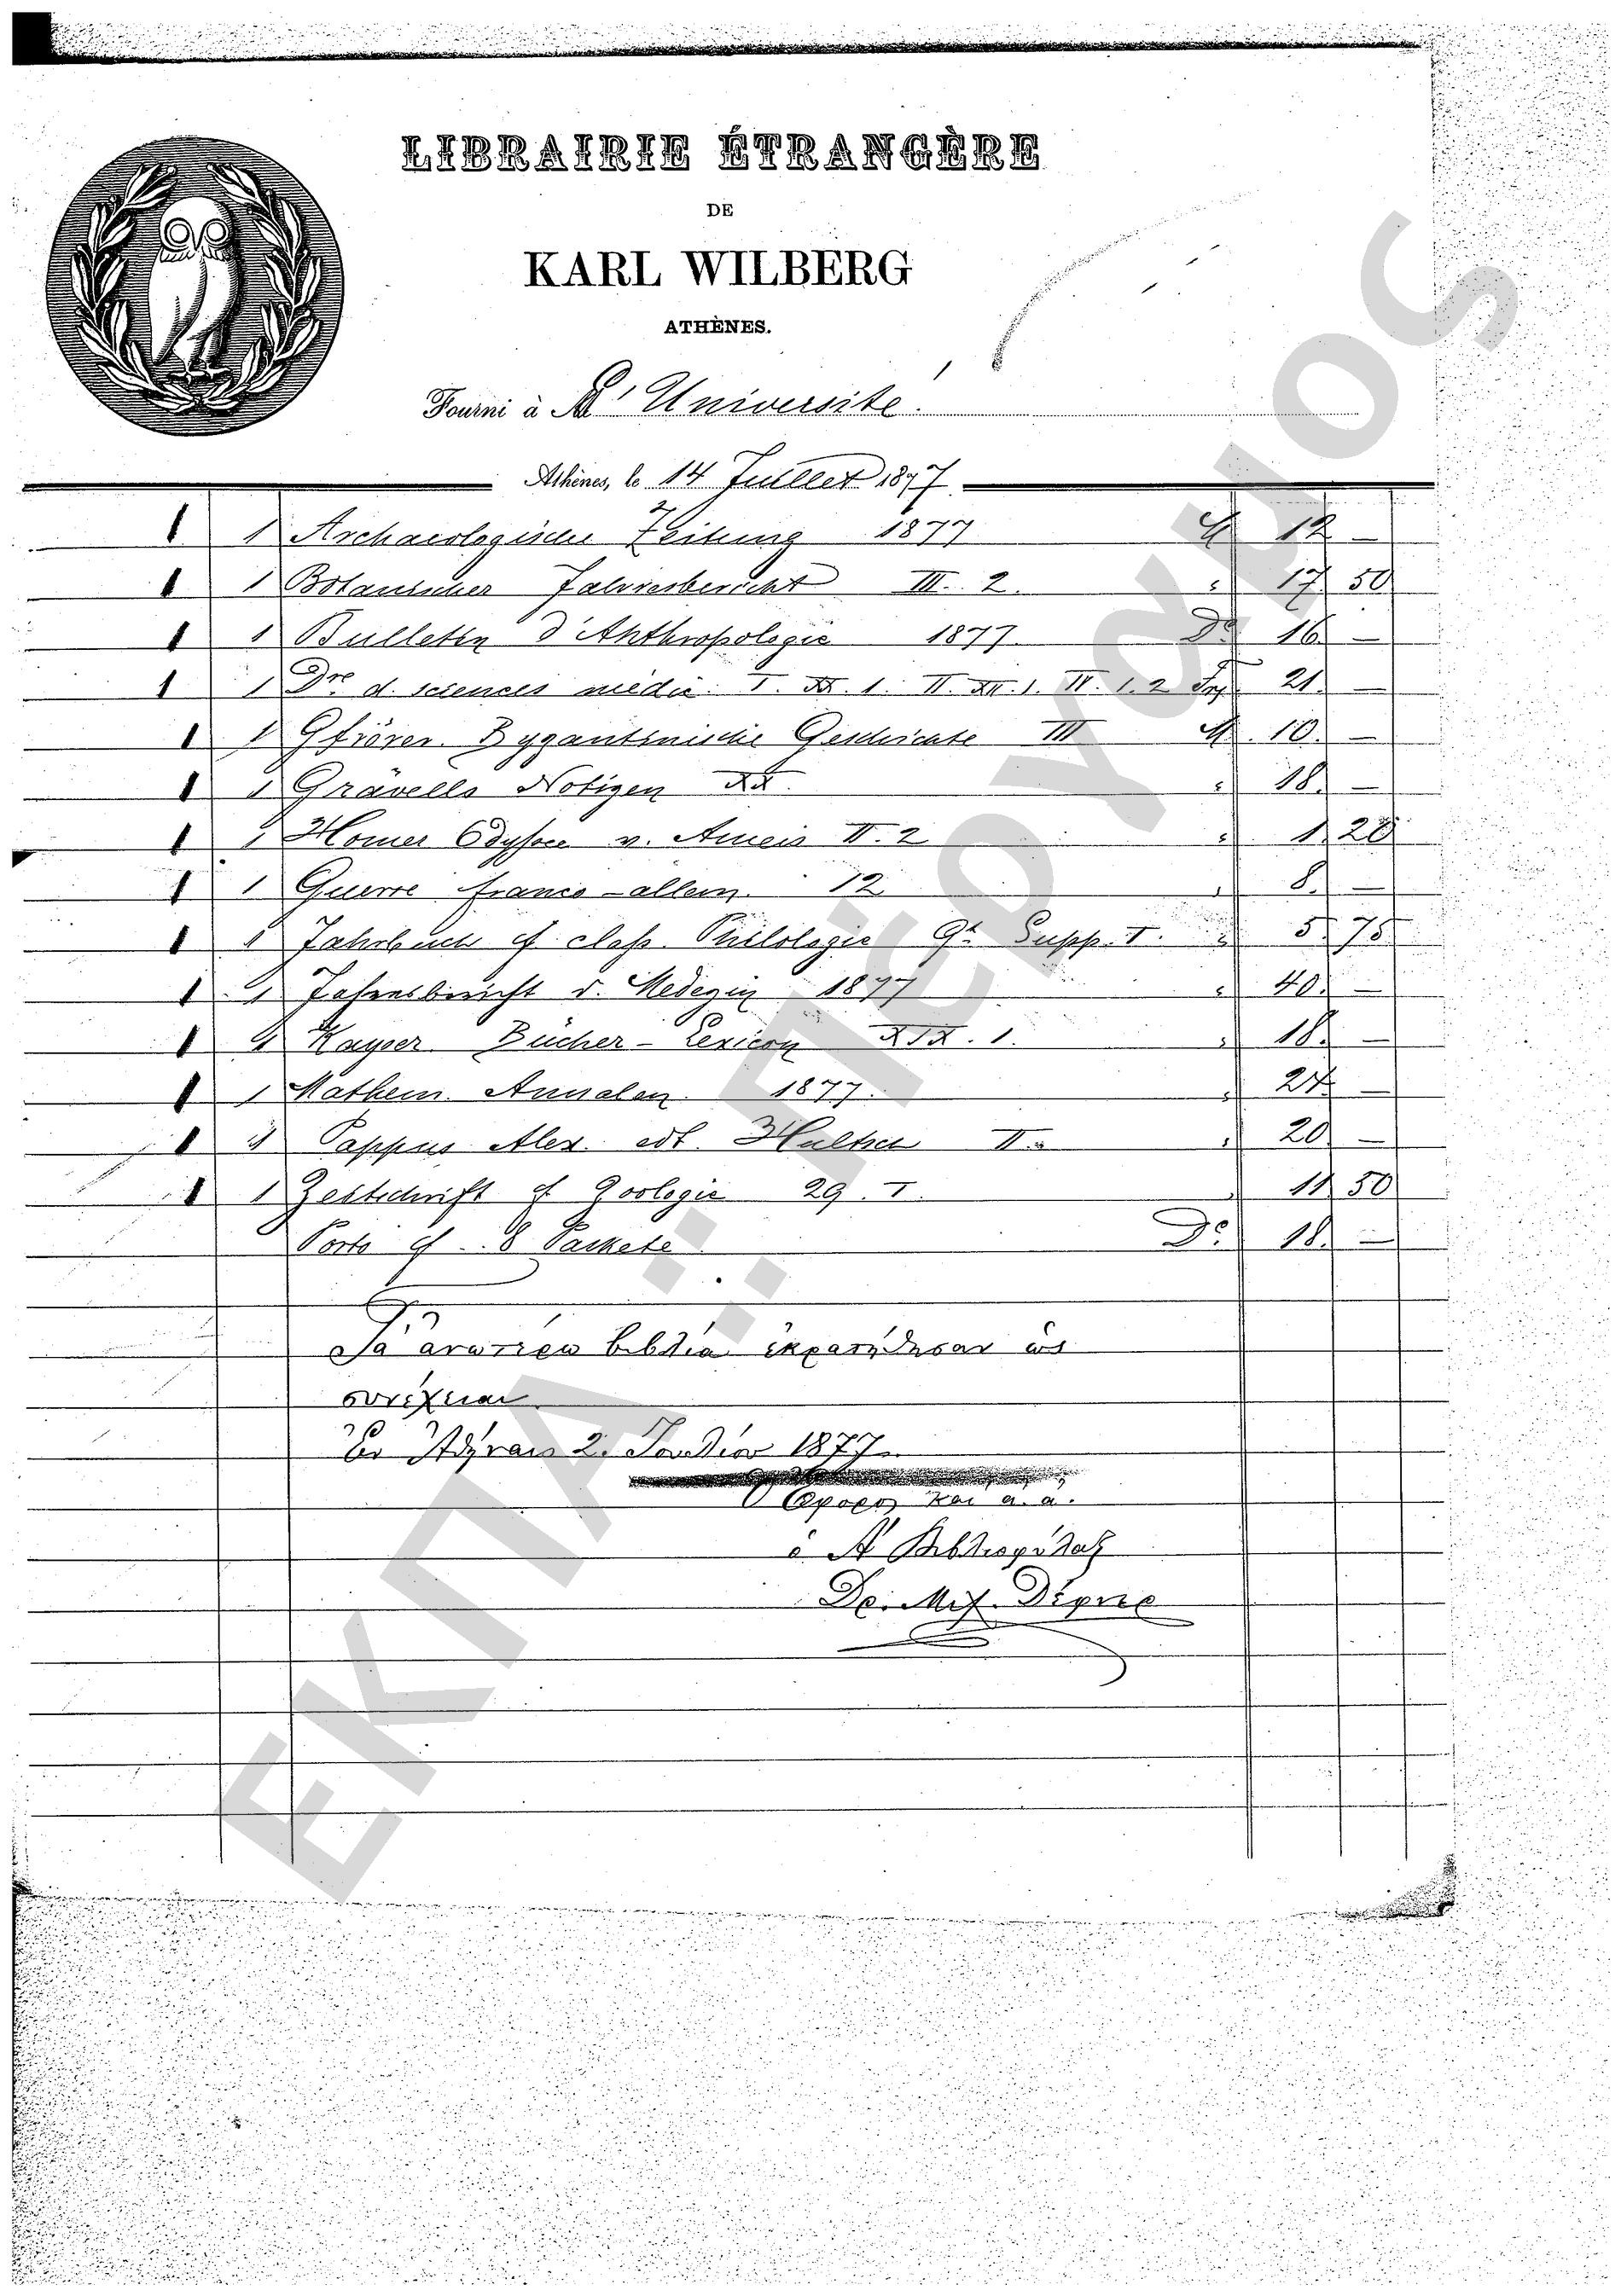 LIBRAIRIE ÉTRANGÈRE
DE
KARL WILBERG
ATHÈNES.
Fourni à l'Université.
Athènes, le 14 Juillet 1877
1 Archaeologische Zeitung 1877 M 12 —
1 Botanischer Jahresbericht III. 2. " 17 50
1 Bulletin d'Anthropologie 1877 Dr 16 —
1 Dre d. sciences médic. I. XX. 1. II. XII. 1. IV. 1. 2 Frs 21. —
1 Gfrörer. Byzantinische Geschichte III M. 10. —
1 Grävells Notizen XX. " 18. —
1 Homer Odyssee v. Ameis II. 2 " 1. 20
1 Guerre franco-allem. 12 " 8. —
1 Jahrbuch f. class. Philologie 9t Supp. I. " 5. 75
1 Jahresbericht d. Medezin 1877 " 40. —
1 Kayser Bücher-Lexicon XIX. 1. " 18. —
1 Mathem. Annalen. 1877. " 24. —
1 Pappus Alex. ed. Hultsch II. " 20 —
1 Zeitschrift f. Zoologie 29. I. " 11 50
Porto f. 8 Packete Dr. 18. —
Τὰ ἀνωτέρω βιβλία ἐκρατήθησαν ὡς
συνέχεια
Ἐν Ἀθήναις 2. Ἰουλίου 1877
Ὁ Ἔφορος καὶ ἀ. ἀ.
ὁ Α΄ Βιβλιοφύλαξ
Δρ. Μιχ. Δέφνερ
ΕΚΠΑ.: Πέργαμος